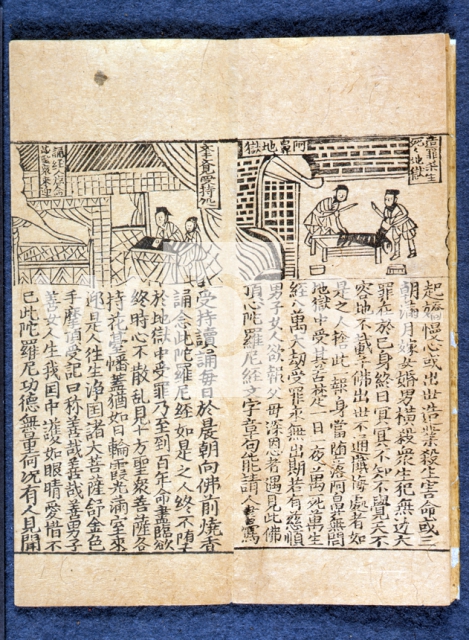 阿鼻地獄
起憍慢心或出世造業殺生害命或三
朝滿月嫁女婚男橫殺衆生犯無边大
罪在於己身終日冥冥不知不覺天不
容地不載千佛出世不通懺悔處者如
是之人捨此一報身當隨落阿鼻無間
地獄中受其苦楚一日一夜萬死萬生
經八萬大劫受罪永無出期若有慈順
男子女人欲報父母深恩者遇見此佛
頂心陀羅尼經文字章句能請人書寫
受持讀誦每日於晨朝向佛前燒香
誦念此陀羅尼經如是之人終不墮
於地獄中受罪乃至到百年命盡臨欲
終時心不散乱見十方聖衆菩薩各
持花臺幡蓋猶如日輪霞光滿室來
迎是人往生淨国諸大菩薩舒金色
手摩頂受記曰稱善哉善哉善男子
善女人生我国中護如眼睛愛惜不
已此陀羅尼功德無量何况有人見聞